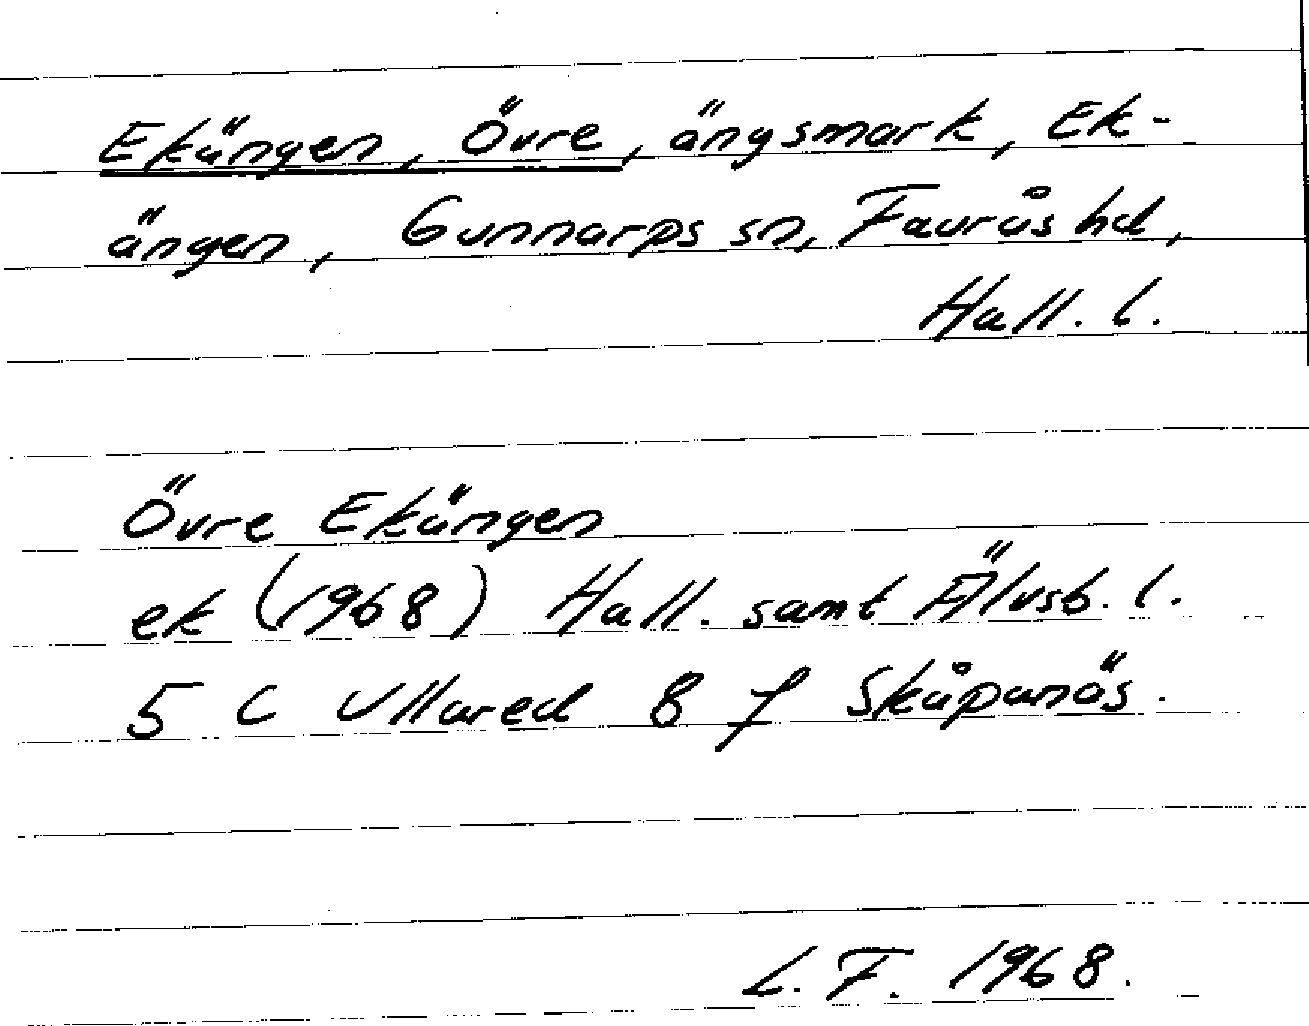 Ekängen, Övre, ängsmark, Ek-
ängen, Gunnarps sn, Faurås hd,
Hall. l.
Övre Ekängen
ek (1968) Hall. samt Älvsb. l.
5 C Ullared 8 f Skåpanäs.
L. F. 1968.